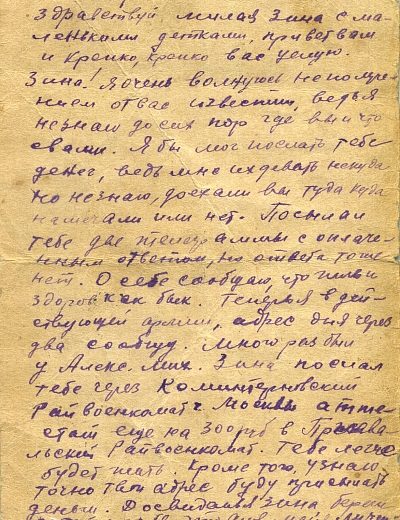 Здравствуй, милая Зина с ма-
ленькими детками, привет вам
и крепко, крепко вас целую.
Зина! Я очень волнуюсь неполуче-
нием от вас известий, ведь я
не знаю до сих пор где вы и что
с вами. Я бы мог послать тебе
денег, ведь мне их девать некуда
но не знаю, доехали вы туда куда
намечали или нет. Посылал
тебе две телеграммы с оплаче-
нным ответом, но ответа тоже
нет. О себе сообщаю, что жив и
здоров как бык. Теперь я в дей-
ствующей армии, адрес дня через
два сообщу. Много раз был
у Алекс. Мих. Зина послал
тебе через Коминтерновский
Райвоенкомат г. Москвы атте-
стат еще на 300 руб в
Райвоенкомат. Тебе легче
будет жить. Кроме того, узнаю
точно твой адрес буду присылать
деньги. Досвидания Зина, береги